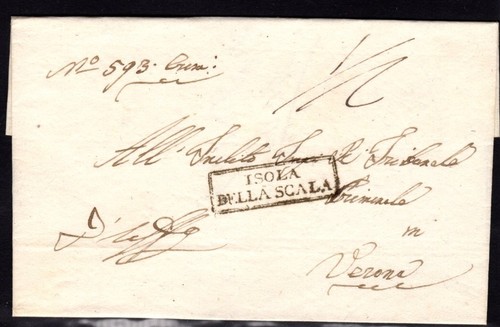 N.º 593. Crim:
All' Inclito Imp. R. Tribunale
ISOLA
DELLA SCALA
Criminale
D'Uff
in
Verona